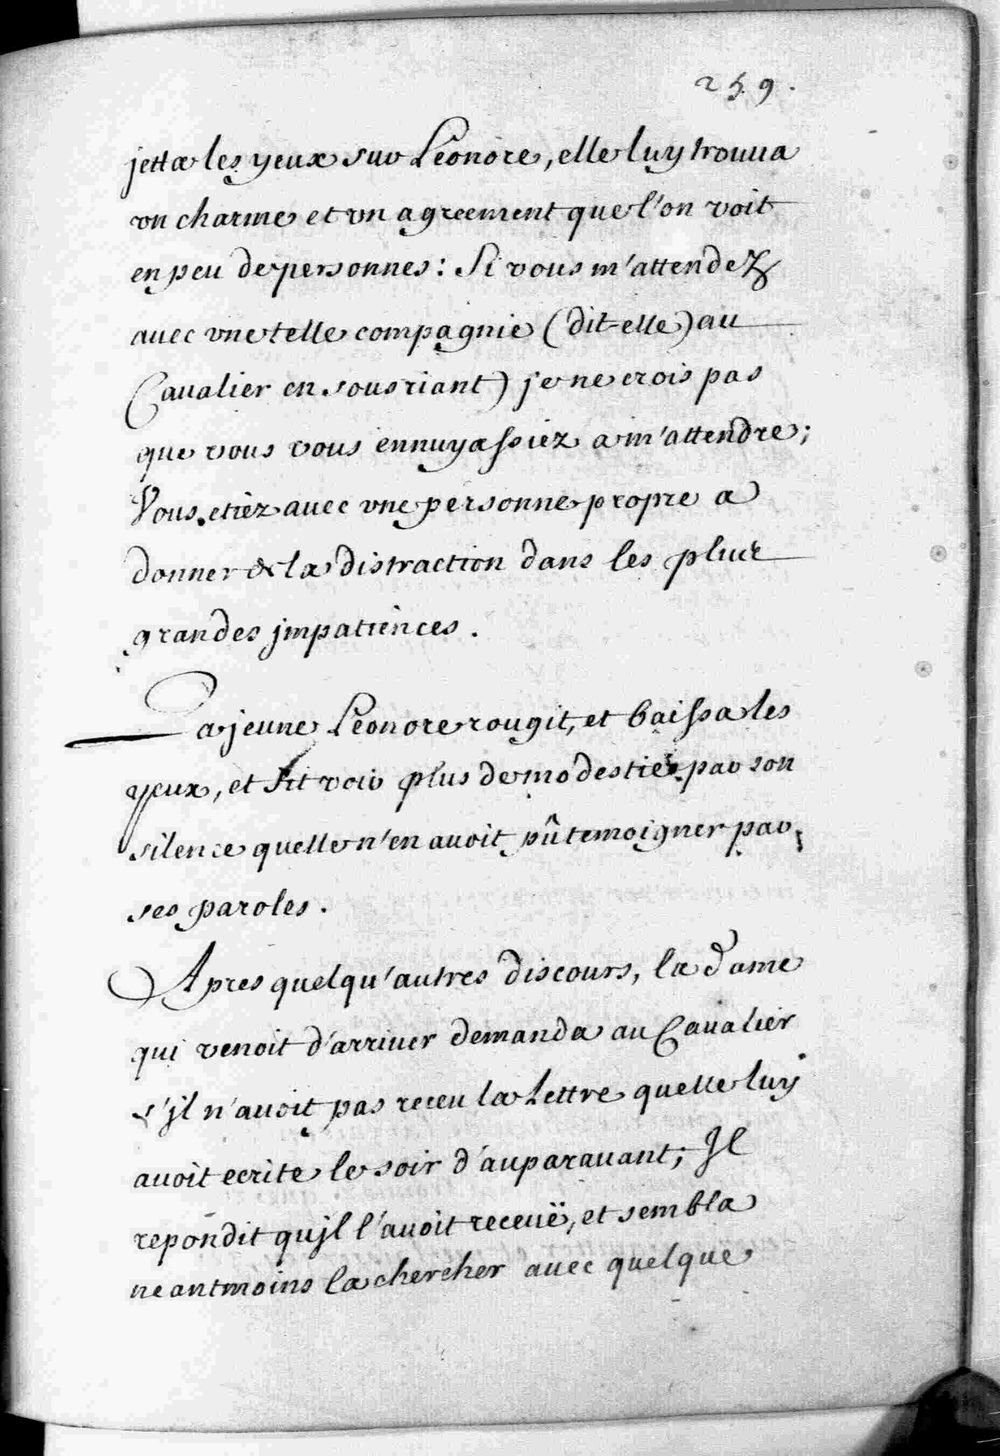 259.
jetta les yeux sur Leonore, elle luy trouua
vn charme et vn agreement que l'on voit
en peu de personnes: Si vous m'attendez
auec vne telle compagnie (dit-elle) au
Caualier en sousriant) je ne crois pas
que vous vous ennuyassiez a m'attendre;
Vous etiez auec vne personne propre a
donner de la distraction dans les plus
grandes jmpatiences.
La jeune Leonore rougit, et baissa les
yeux, et fit voir plus de modestie par son
silence quelle n'en auoit pû temoigner par
ses paroles.
Apres quelqu'autres discours, la dame
qui venoit d'arriuer demanda au Caualier
s'jl n'auoit pas receu la Lettre quelle luy
auoit ecrite le soir d'auparauant; Jl
repondit qujl l'auoit receuë, et sembla
neantmoins la chercher auec quelque